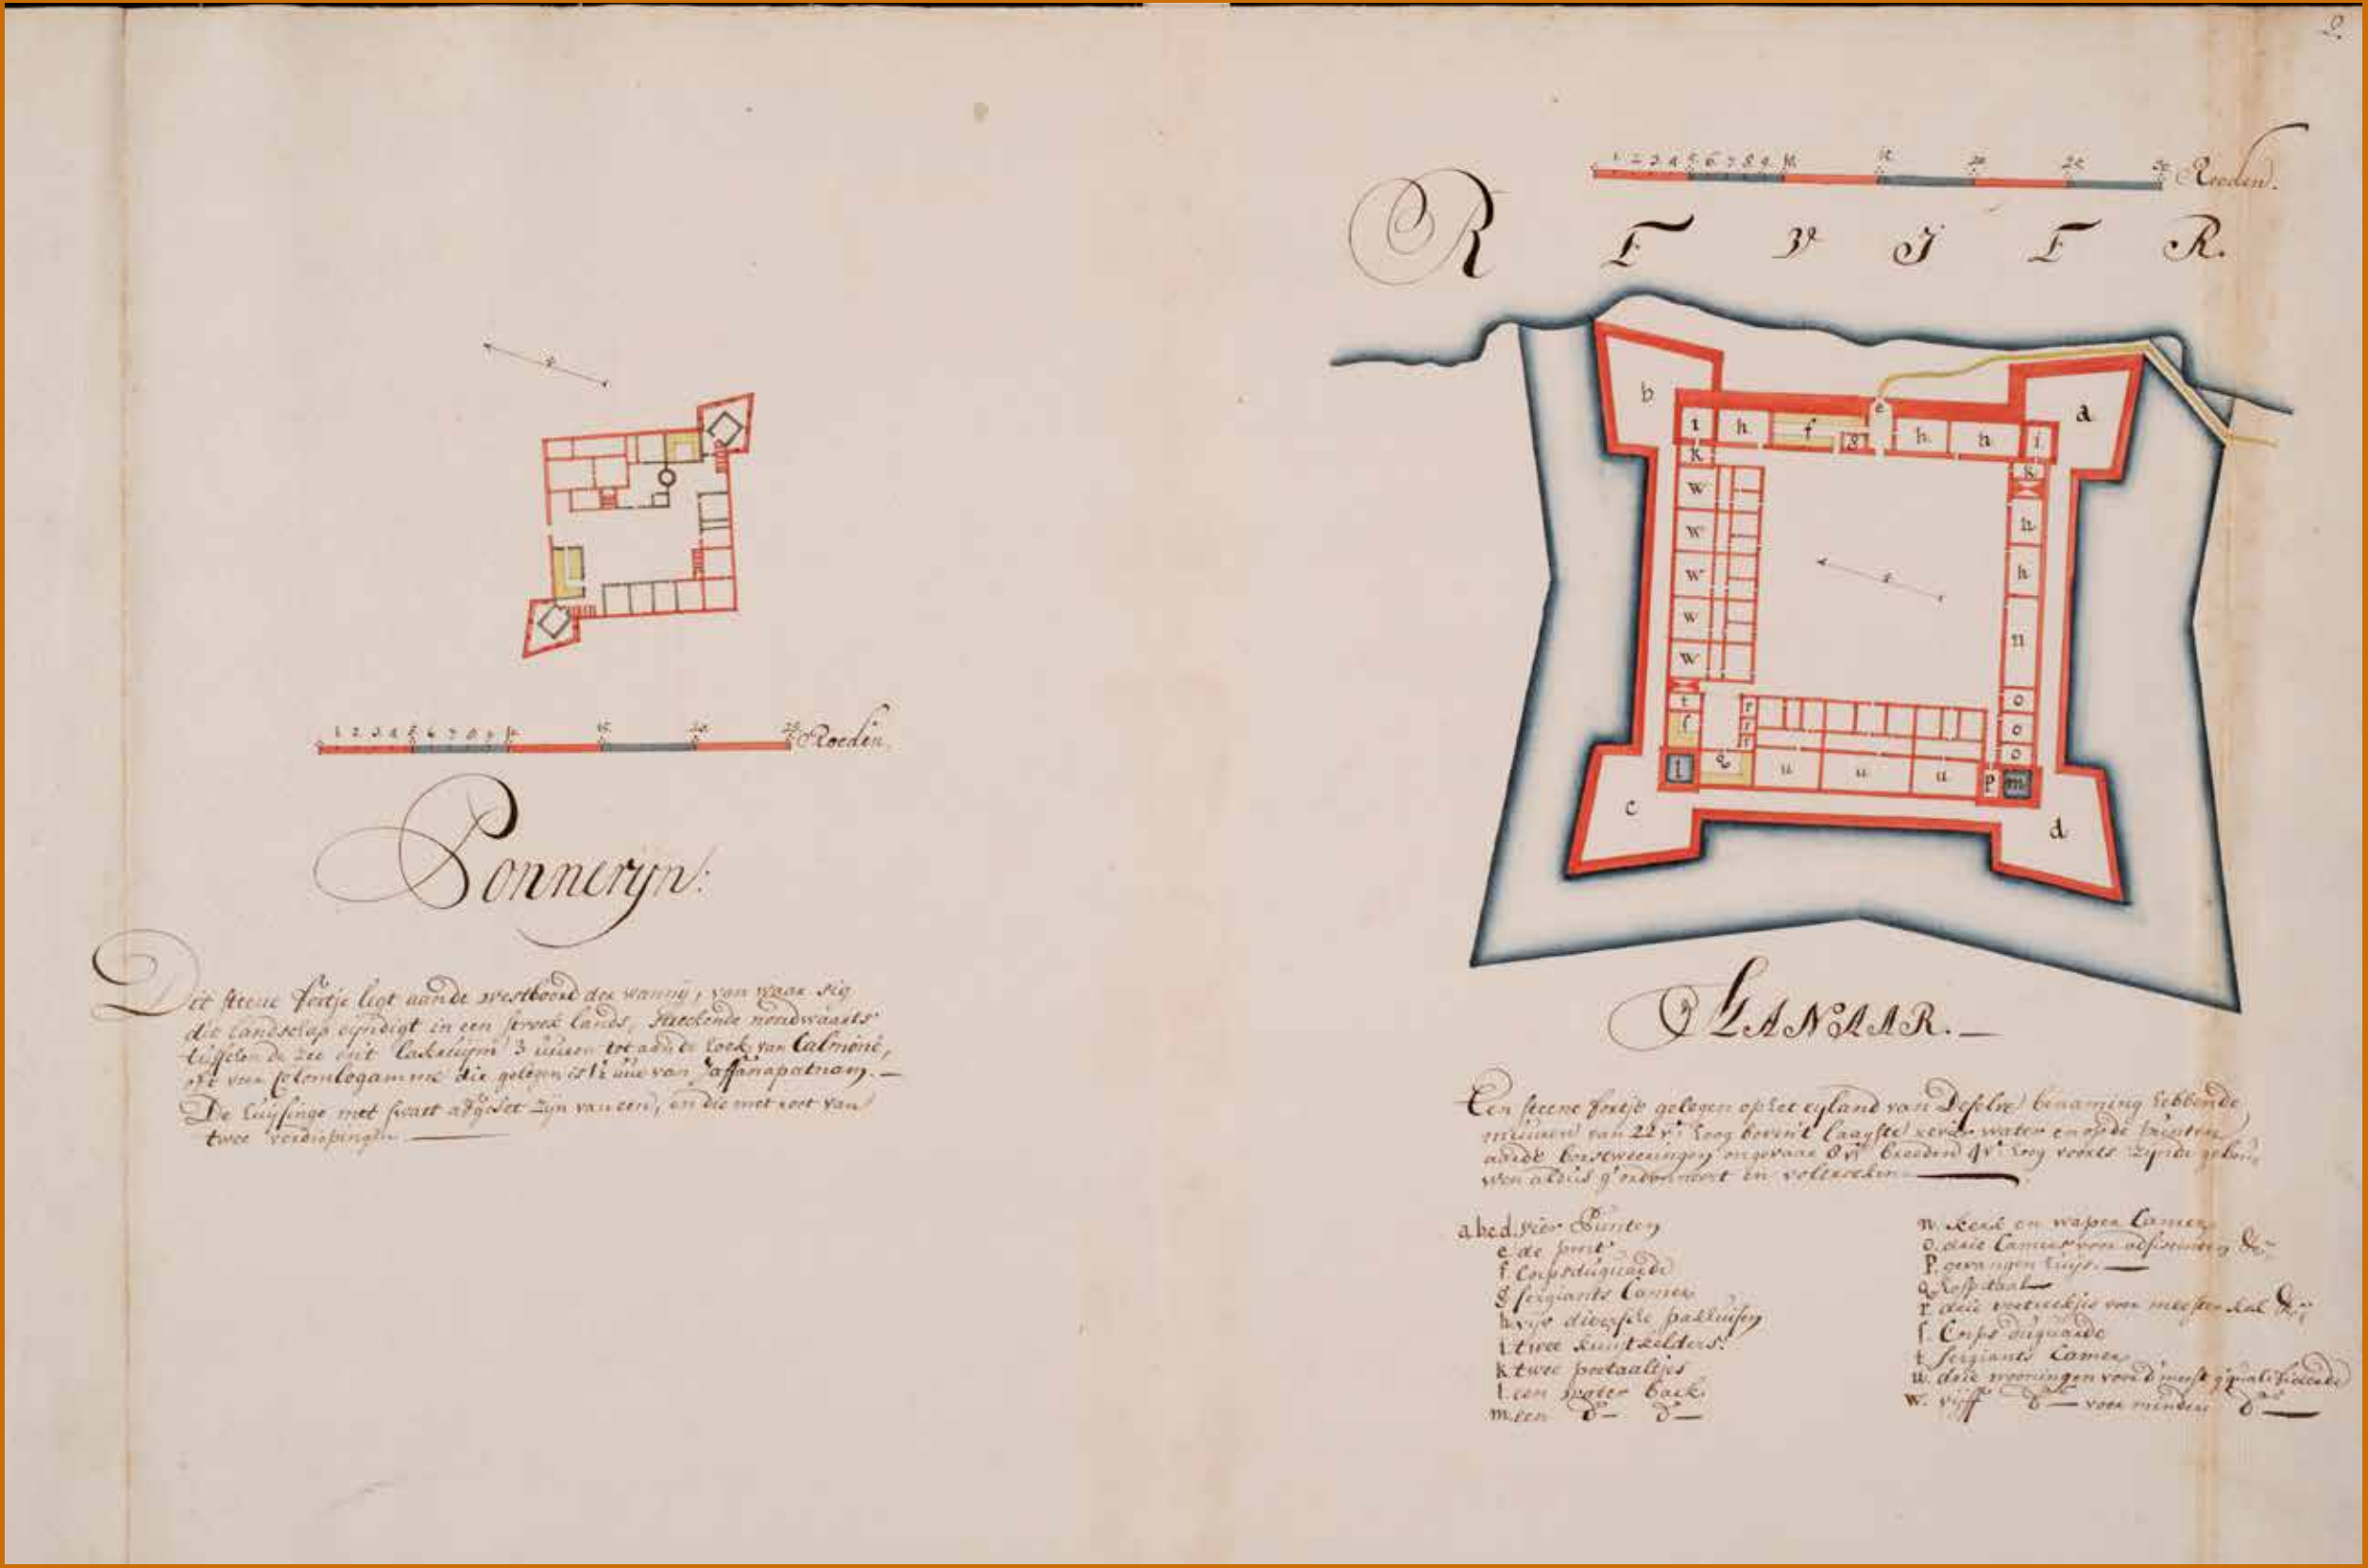 2.
1 2 3 4 5 6 7 8 9 10 15 20 25 Roeden.
Ponneryn:
Dit steene fortje legt aande westboord der wannij, van waar sig
dit landschap eyndigt in een strook lands, streckende noordwaarts
tusschen de zee en't 3 uuren tot aan de hoek van Calmöne,
oft veer Colombogamme die gelegen is 1½ uur van Jaffanapatnam.
De huysinge met swart afgeset zijn van een, en die met root van
twee verdiepingen
1 2 3 4 5 6 7 8 9 10 15 20 25 30 Roeden.
REVIER.
b a
e
i h f g h h i
k k
w h
w h
w n
w
w
t r o
f r o
r o
l q u u u p m
c d
MANAAR.
Een steene fortje gelegen op het eyland van Deselve benaming hebbende
muuren van 22 vt. hoog boven't laagste revier water en op de punten
aarde borstweeringen ongevaar 8 vt. breeden 4 vt. hoog voorts zijn de gebou
wen aldus g'ordonneert en voltrocken
abcd. vier Punten
e de port
f Corps duguarde
g sergiants Camer
h vijf diversche pakhuisen
i twee kruijtkelders
k twee portaaltjes
l een water back
m een do do
n. kerk en wapen Camer
o. drie Camers voor adsistenten &a
p. gevangen huijs.
q. hospitaal
r drie vertrekjes voor meester kok &a
f. Corps duguarde
t sergiants Camer
u. drie wooningen voor d'meest g'qualificeerde
w. vijff do voor mindere do